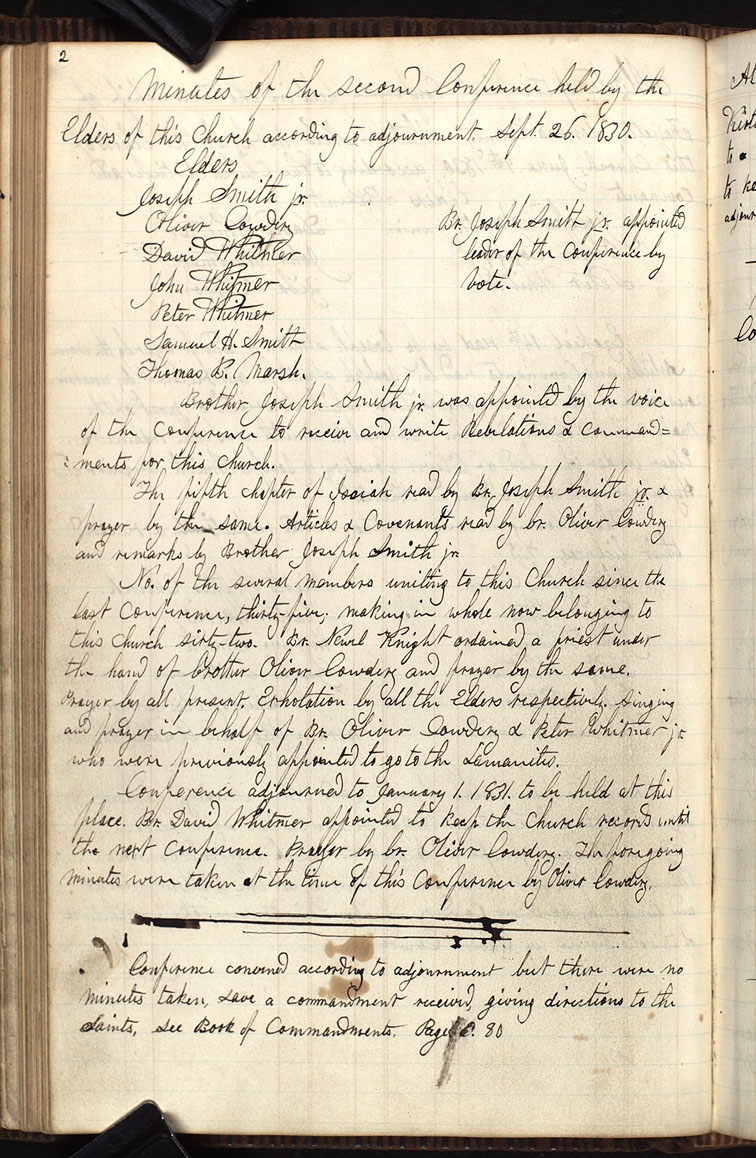 2
Minutes of the second Conference held by the
Elders of this Church according to adjournment. Sept. 26. 1830.
Elders
Joseph Smith jr.
Oliver Cowdery
David Whitmer
John Whitmer
Peter Whitmer
Samuel H. Smith
Thomas B. Marsh.
Br. Joseph Smith jr. appointed
leader of the Conference by
vote.
Brother Joseph Smith jr. was appointed by the voice
of the Conference to receive and write Revelations & command=
=ments for this Church.
The fifth chapter of Isaiah read by Br. Joseph Smith jr. &
prayer by the same. Articles & Covenants read by br. Oliver Cowdery
and remarks by Brother Joseph Smith jr.
No. of the several members uniting to this Church since the
last Conference, thirty-five; making in whole now belonging to
this Church sixty-two. Br. Newel Knight ordained a priest under
the hand of brother Oliver Cowdery and prayer by the same.
Prayer by all present. Exhotation by all the Elders respectively. Singing
and prayer in behalf of Br. Oliver Cowdery & Peter Whitmer jr.
who were previously appointed to go to the Lamanites.
Conference adjourned to January 1. 1831. to be held at this
place. Br. David Whitmer appointed to keep the Church records until
the next Conference. Prayer by br. Oliver Cowdery. The foregoing
minutes were taken at the time of this Conference by Oliver Cowdery.
Conference convened according to adjournment but there were no
minutes taken, save a commandment received, giving directions to the
Saints, see Book of Commandments. Page 80
At
Kirt
to
to ke
adjour
Co